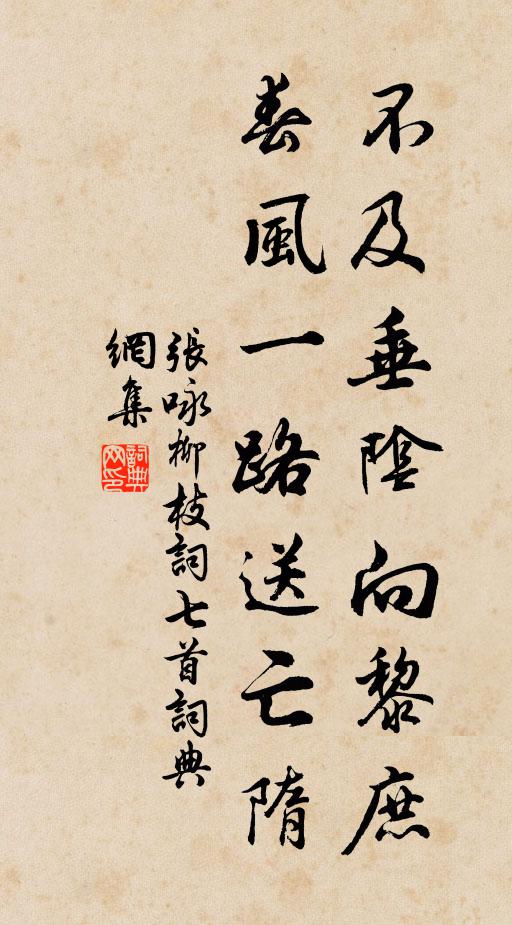 不及垂陰向黎庶
春風一路送亡隋
張咏柳枝詞七首詞典
網集
詞典网印